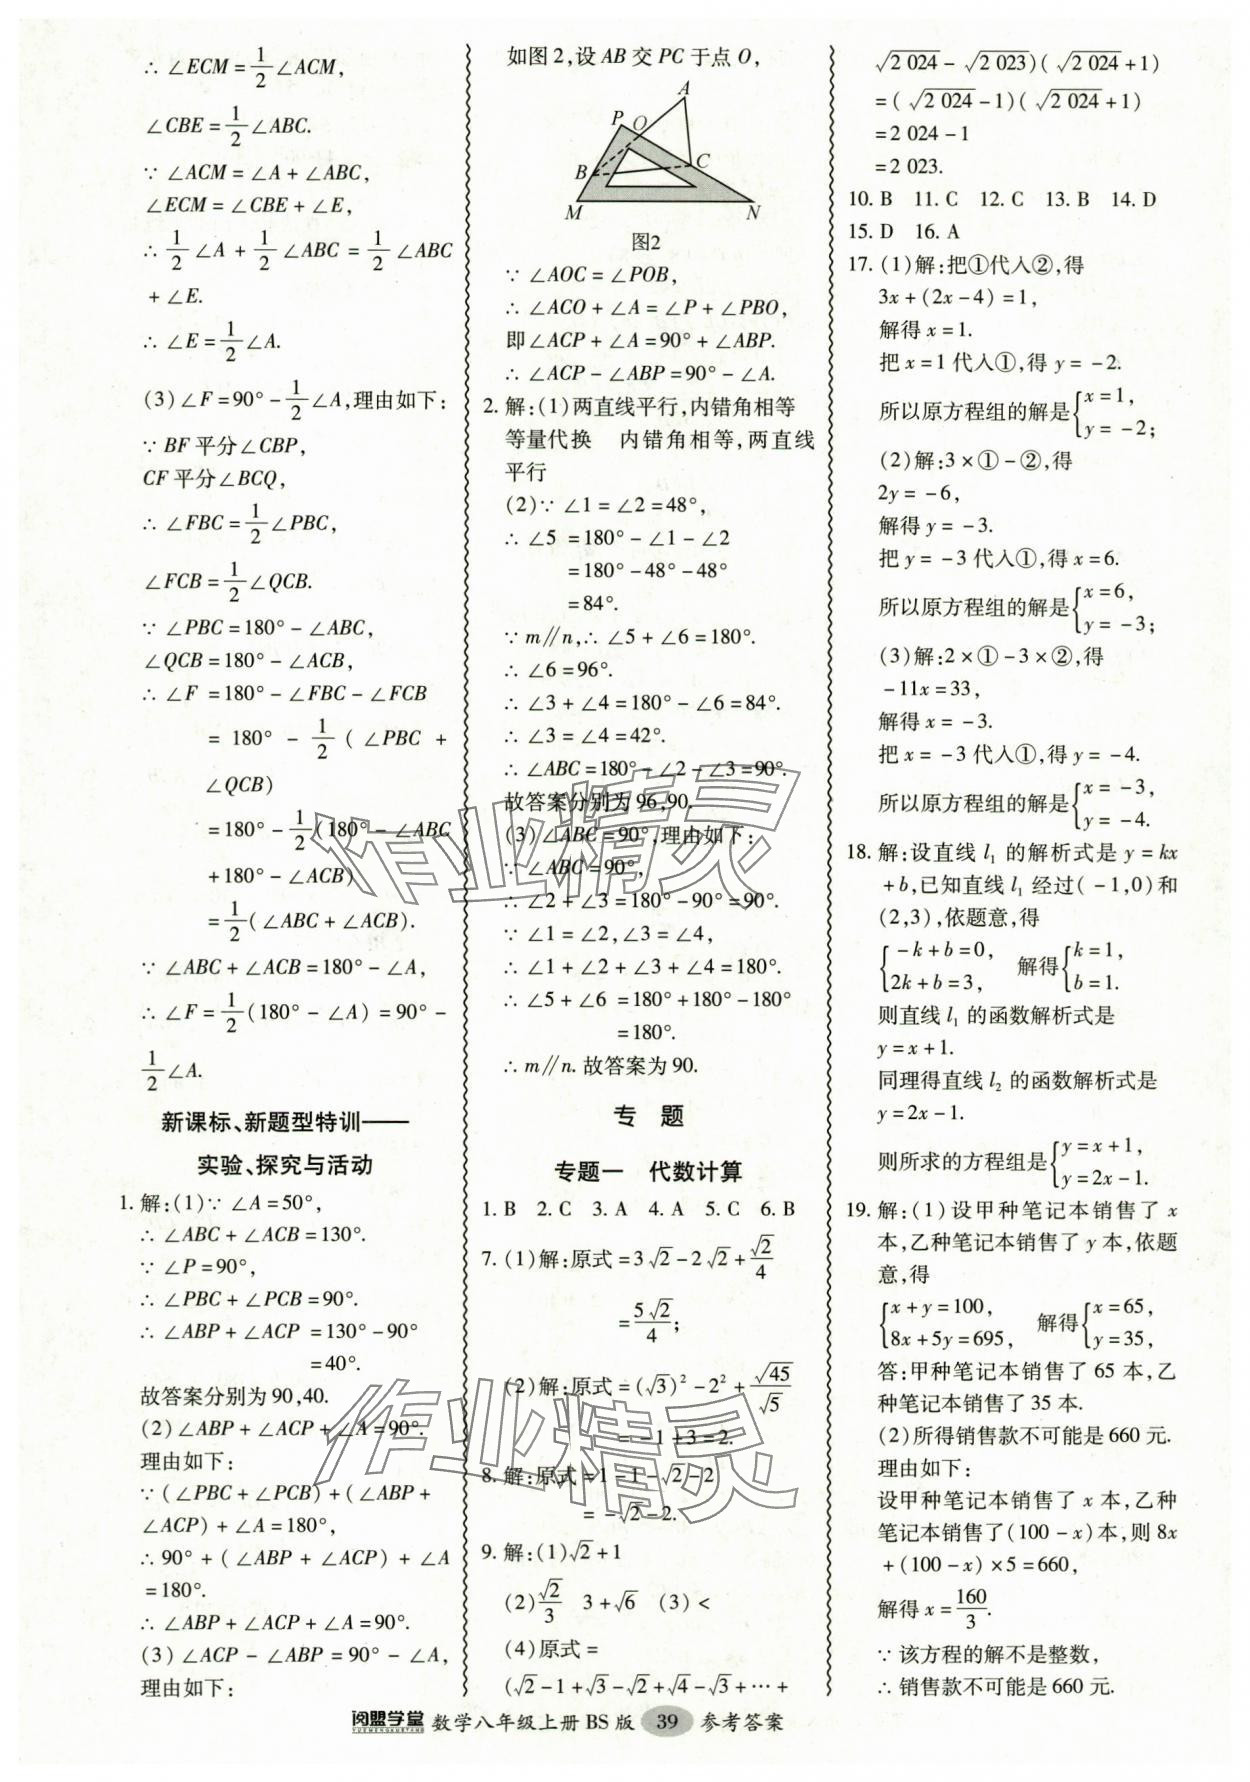 ∴ ∠ECM = 1/2 ∠ACM,
∠CBE = 1/2 ∠ABC.
∵ ∠ACM = ∠A + ∠ABC,
∠ECM = ∠CBE + ∠E,
∴ 1/2 ∠A + 1/2 ∠ABC = 1/2 ∠ABC
+ ∠E.
∴ ∠E = 1/2 ∠A.
(3) ∠F = 90° - 1/2 ∠A,理由如下:
∵ BF 平分∠CBP,
CF 平分∠BCQ,
∴ ∠FBC = 1/2 ∠PBC,
∠FCB = 1/2 ∠QCB.
∵ ∠PBC = 180° - ∠ABC,
∠QCB = 180° - ∠ACB,
∴ ∠F = 180° - ∠FBC - ∠FCB
= 180° - 1/2 ( ∠PBC +
∠QCB)
= 180° - 1/2 (180° - ∠ABC
+ 180° - ∠ACB)
= 1/2 ( ∠ABC + ∠ACB).
∵ ∠ABC + ∠ACB = 180° - ∠A,
∴ ∠F = 1/2 (180° - ∠A) = 90° -
1/2 ∠A.
新课标、新题型特训——
实验、探究与活动
1. 解:(1)∵ ∠A = 50°,
∴ ∠ABC + ∠ACB = 130°.
∵ ∠P = 90°,
∴ ∠PBC + ∠PCB = 90°.
∴ ∠ABP + ∠ACP = 130° - 90°
= 40°.
故答案分别为 90,40.
(2) ∠ABP + ∠ACP + ∠A = 90°.
理由如下:
∵ ( ∠PBC + ∠PCB) + ( ∠ABP +
∠ACP) + ∠A = 180°,
∴ 90° + ( ∠ABP + ∠ACP) + ∠A
= 180°.
∴ ∠ABP + ∠ACP + ∠A = 90°.
(3) ∠ACP - ∠ABP = 90° - ∠A,
理由如下:
如图 2,设 AB 交 PC 于点 O,
A
P
O
C
B
M
N
图2
∵ ∠AOC = ∠POB,
∴ ∠ACO + ∠A = ∠P + ∠PBO,
即∠ACP + ∠A = 90° + ∠ABP.
∴ ∠ACP - ∠ABP = 90° - ∠A.
2. 解:(1)两直线平行,内错角相等
等量代换　内错角相等,两直线
平行
(2)∵ ∠1 = ∠2 = 48°,
∴ ∠5 = 180° - ∠1 - ∠2
= 180° - 48° - 48°
= 84°.
∵ m∥n,∴ ∠5 + ∠6 = 180°.
∴ ∠6 = 96°.
∴ ∠3 + ∠4 = 180° - ∠6 = 84°.
∴ ∠3 = ∠4 = 42°.
∴ ∠ABC = 180° - ∠2 - ∠3 = 90°.
故答案分别为 96,90.
(3) ∠ABC = 90°,理由如下:
∵ ∠ABC = 90°,
∴ ∠2 + ∠3 = 180° - 90° = 90°.
∵ ∠1 = ∠2, ∠3 = ∠4,
∴ ∠1 + ∠2 + ∠3 + ∠4 = 180°.
∴ ∠5 + ∠6 = 180° + 180° - 180°
= 180°.
∴ m∥n. 故答案为 90.
专　题
专题一　代数计算
1. B　2. C　3. A　4. A　5. C　6. B
7. (1)解:原式 = 3√2 - 2√2 + √2/4
= 5√2/4;
(2)解:原式 = (√3)² - 2² + √45/√5
= -1 + 3 = 2.
8. 解:原式 = 1 - 1 - √2 - 2
= -√2 - 2.
9. 解:(1)√2 + 1
(2) √2/3　3 + √6　(3) <
(4)原式 =
(√2 - 1 + √3 - √2 + √4 - √3 + ⋯ +
√2 024 - √2 023)( √2 024 + 1)
= ( √2 024 - 1)( √2 024 + 1)
= 2 024 - 1
= 2 023.
10. B　11. C　12. C　13. B　14. D
15. D　16. A
17. (1)解:把①代入②,得
3x + (2x - 4) = 1,
解得 x = 1.
把 x = 1 代入①,得 y = -2.
所以原方程组的解是{x = 1, y = -2;
(2)解:3 × ① - ②,得
2y = -6,
解得 y = -3.
把 y = -3 代入①,得 x = 6.
所以原方程组的解是{x = 6, y = -3;
(3)解:2 × ① - 3 × ②,得
-11x = 33,
解得 x = -3.
把 x = -3 代入①,得 y = -4.
所以原方程组的解是{x = -3, y = -4.
18. 解:设直线 l₁ 的解析式是 y = kx
+ b,已知直线 l₁ 经过( -1,0)和
(2,3),依题意,得
{-k + b = 0, 2k + b = 3, 解得{k = 1, b = 1.
则直线 l₁ 的函数解析式是
y = x + 1.
同理得直线 l₂ 的函数解析式是
y = 2x - 1.
则所求的方程组是{y = x + 1, y = 2x - 1.
19. 解:(1)设甲种笔记本销售了 x
本,乙种笔记本销售了 y 本,依题
意,得
{x + y = 100, 8x + 5y = 695, 解得{x = 65, y = 35,
答:甲种笔记本销售了 65 本,乙
种笔记本销售了 35 本.
(2)所得销售款不可能是 660 元.
理由如下:
设甲种笔记本销售了 x 本,乙种
笔记本销售了(100 - x)本,则 8x
+ (100 - x) × 5 = 660,
解得 x = 160/3.
∵ 该方程的解不是整数,
∴ 销售款不可能是 660 元.
作业精灵
作业精灵
阅盟学堂 YUEMENGXUETANG 数学八年级上册 BS 版 39 参考答案